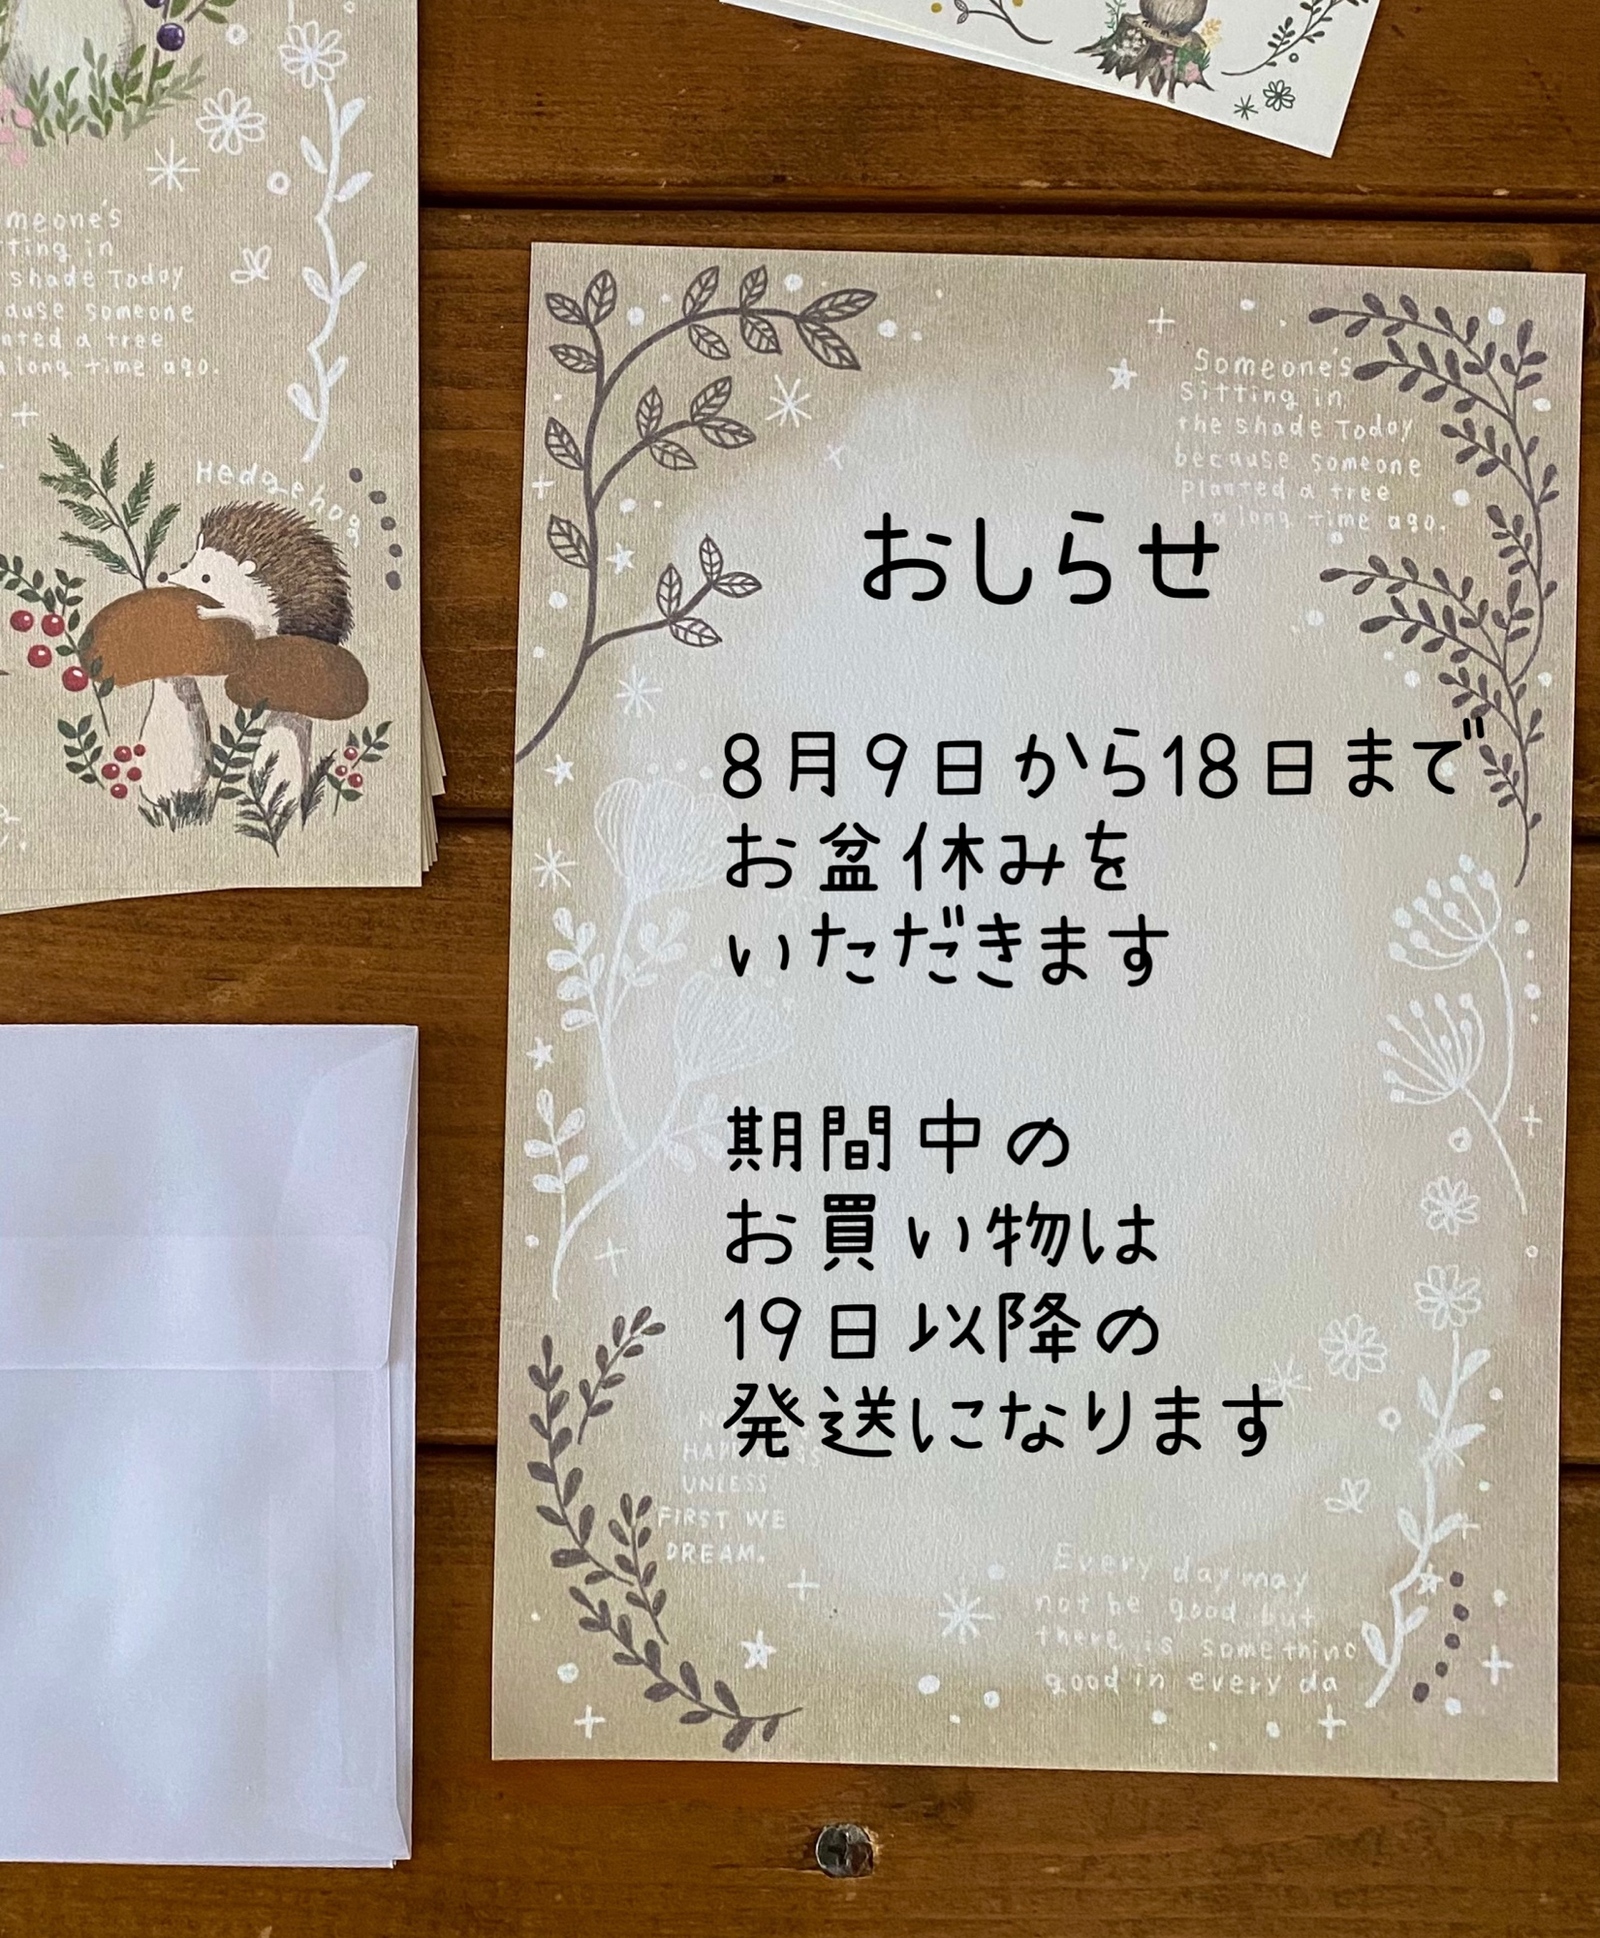 meone's
tting in
shade Today
ause someone
nted a tree
a long time ago.
Hedgehog
Someone's
sitting in
the shade Today
because someone
planted a tree
a long time ago.
おしらせ
8月9日から18日まで
お盆休みを
いただきます
期間中の
お買い物は
19日以降の
発送になります
UNLESS
FIRST WE
DREAM.
Every day may
not be good but
there is something
good in every da